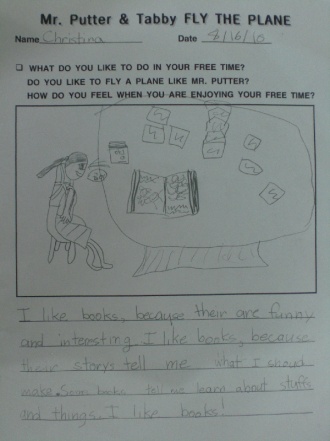 Mr. Putter & Tabby FLY THE PLANE
Name Christina Date 8/6/10
❑ WHAT DO YOU LIKE TO DO IN YOUR FREE TIME?
DO YOU LIKE TO FLY A PLANE LIKE MR. PUTTER?
HOW DO YOU FEEL WHEN YOU ARE ENJOYING YOUR FREE TIME?
I like books, because their are funny
and interesting. I like books, because
their storys tell me what I should
make. Some books tell me learn about stuffs
and things. I like books!